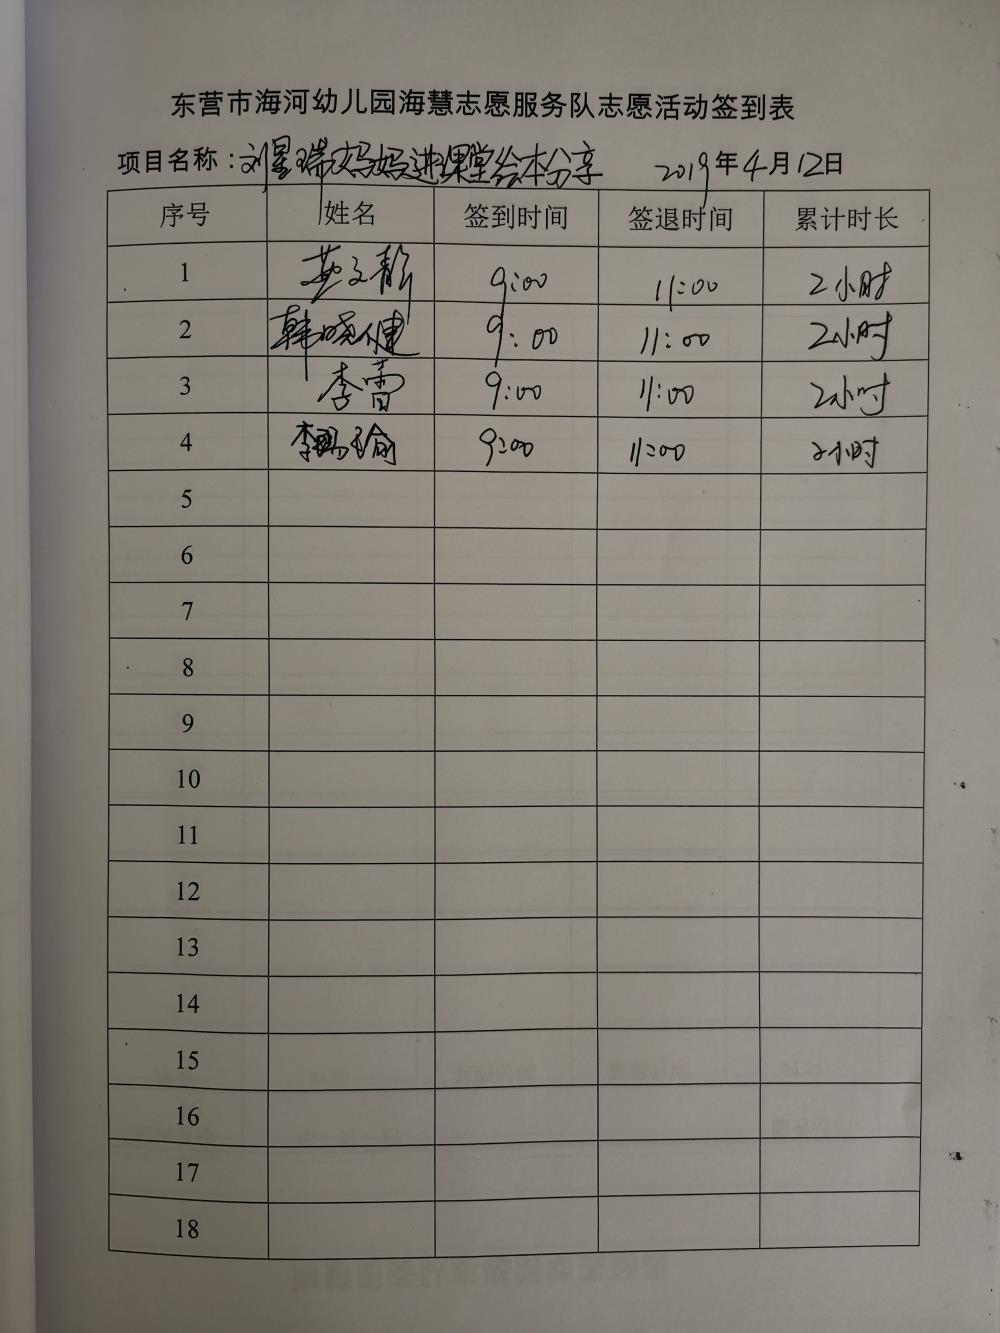 东营市海河幼儿园海慧志愿服务队志愿活动签到表
项目名称：刘星瑞妈妈进课堂绘本分享 2019年4月12日
序号 姓名 签到时间 签退时间 累计时长
1 燕文静 9:00 11:00 2小时
2 韩晓健 9:00 11:00 2小时
3 李蕾 9:00 11:00 2小时
4 9:00 11:00 2小时
5
6
7
8
9
10
11
12
13
14
15
16
17
18